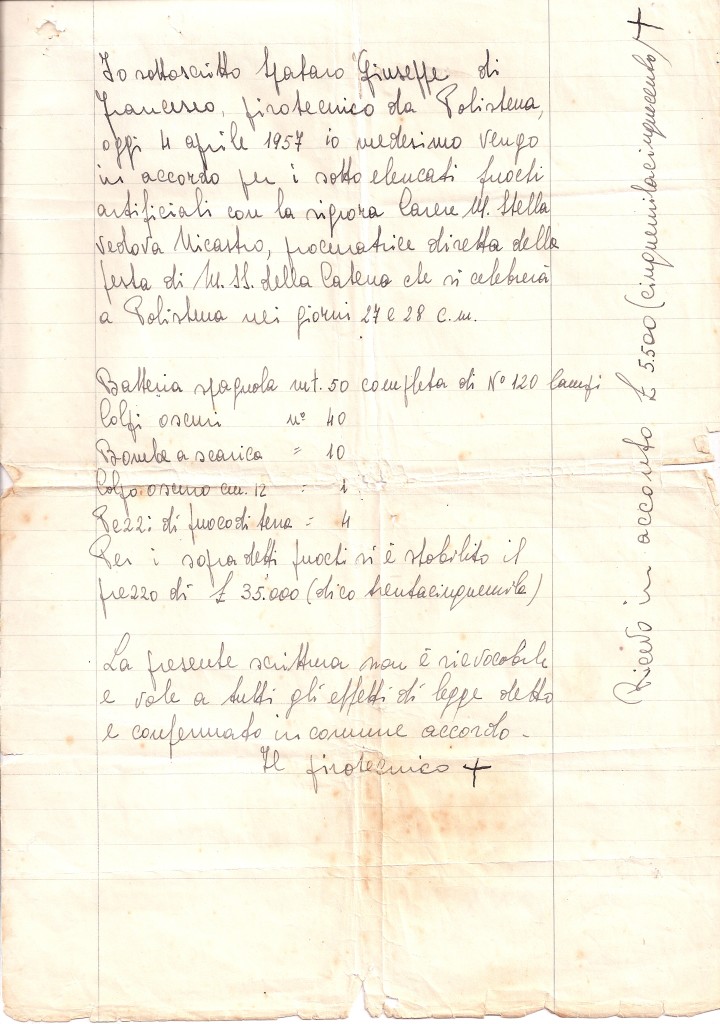 Io sottoscritto Spataro Giuseppe di
Francesco, pirotecnico da Polistena,
oggi 4 aprile 1957 io medesimo vengo
in accordo per i sotto elencati fuochi
artificiali con la signora Carere M. Stella
vedova Nicastro, procuratrice diretta della
festa di M. SS. della Catena che si celebrerà
a Polistena nei giorni 27 e 28 c.m.
Batteria spagnola mt. 50 completa di N° 120 lampi
Colpi oscuri n° 40
Bombe a scarica = 10
Colpo oscuro cm. 12 = 1
Pezzi di fuoco di terra = 4
Per i sopradetti fuochi si è stabilito il
prezzo di £ 35.000 (dico trentacinquemila)
La presente scrittura non è rievocabile
e vale a tutti gli effetti di legge detto
e confermato in comune accordo.
Il pirotecnico +
Ricevo in acconto £ 5.500 (cinquemilacinquecento) +